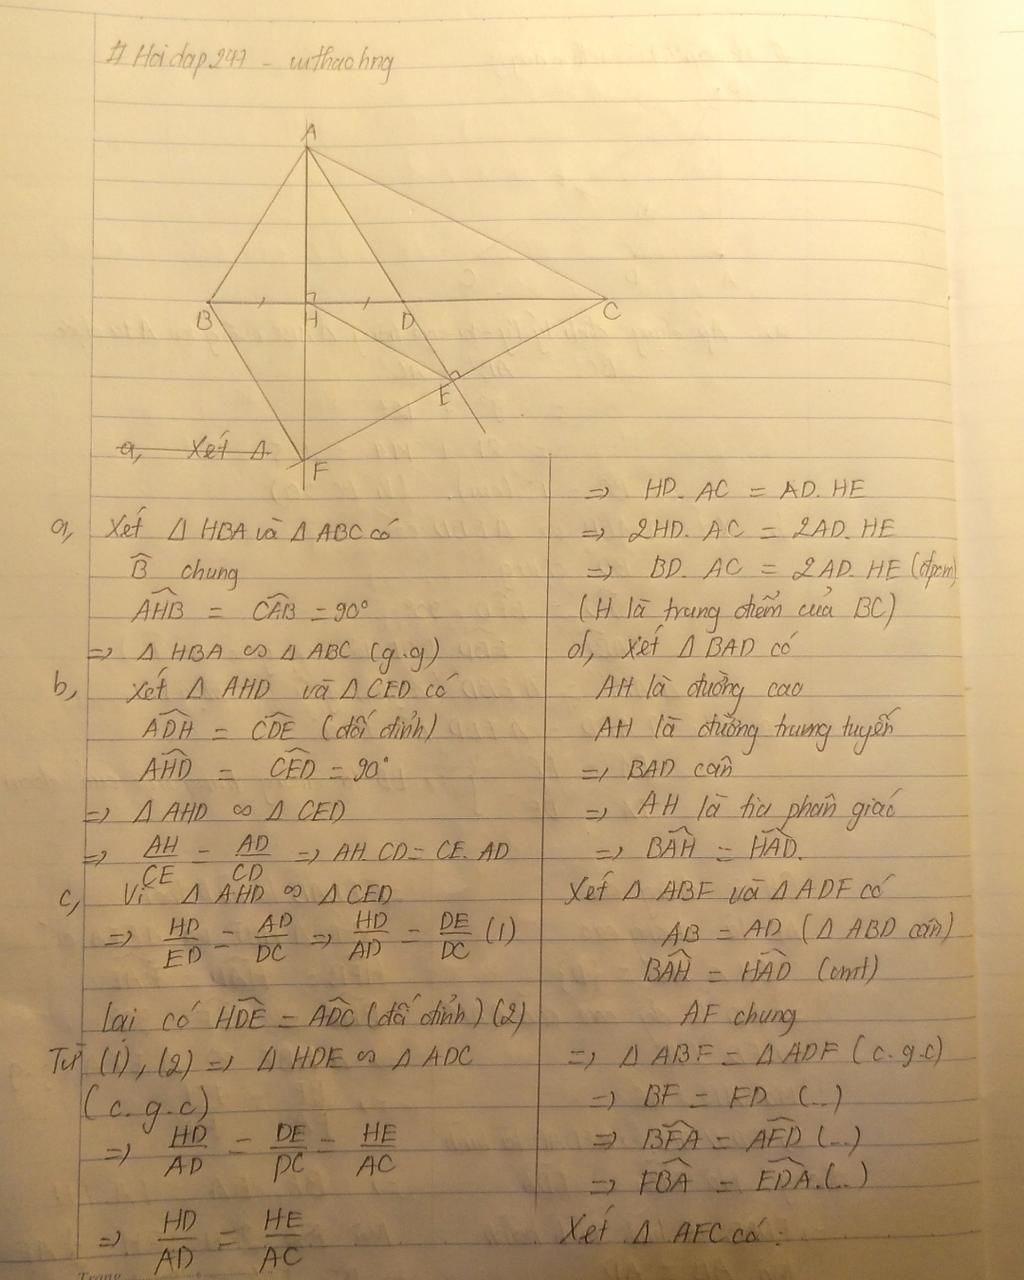 # Hoidap247 - uuthaohng
A
B
H
D
C
E
F
a, Xét Δ
a, Xét Δ HBA và Δ ABC có
B̂ chung
AHB̂ = CAB̂ = 90°
=> Δ HBA ∽ Δ ABC (g.g)
b, Xét Δ AHD và Δ CED có
ADĤ = CDÊ (đối đỉnh)
AHD̂ = CED̂ = 90°
=> Δ AHD ∽ Δ CED
=> AH/CE = AD/CD => AH. CD = CE. AD
c, Vì Δ AHD ∽ Δ CED
=> HD/ED = AD/DC => HD/AD = DE/DC (1)
lại có HDÊ = ADĈ (đối đỉnh) (2)
Từ (1), (2) => Δ HDE ∽ Δ ADC
(c.g.c)
=> HD/AD = DE/DC = HE/AC
=> HD/AD = HE/AC
=> HD. AC = AD. HE
=> 2HD. AC = 2AD. HE
=> BD. AC = 2AD. HE (đpcm)
(H là trung điểm của BC)
d, Xét Δ BAD có
AH là đường cao
AH là đường trung tuyến
=> BAD cân
=> AH là tia phân giác
=> BAĤ = HAD̂.
Xét Δ ABF và Δ ADF có
AB = AD (Δ ABD cân)
BAĤ = HAD̂ (cmt)
AF chung
=> Δ ABF = Δ ADF (c.g.c)
=> BF = FD (...)
=> BFÂ = AFD̂ (...)
=> FBÂ = FDÂ. (...)
Xét Δ AFC có: